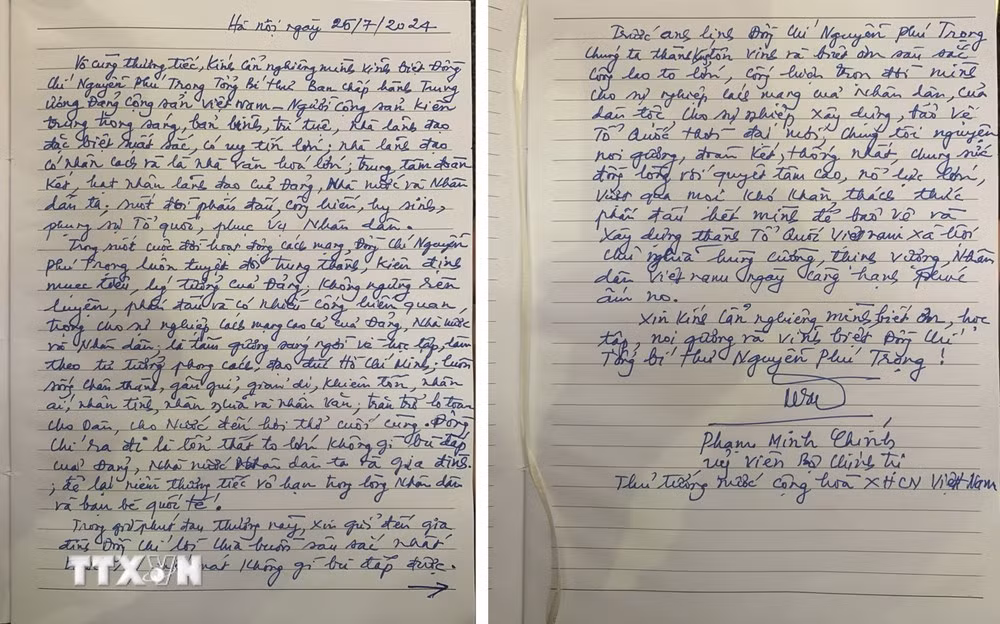 Hà nội ngày 25/7/2024
Vô cùng thương tiếc, Kính Cẩn nghiêng mình Vĩnh biệt Đồng
Chí Nguyễn Phú Trọng Tổng Bí thư Ban chấp hành Trung
Ương Đảng Cộng sản Việt Nam - Người Cộng sản Kiên
trung trong sáng, bản lĩnh, trí tuệ, Nhà lãnh đạo
đặc biệt xuất sắc, có uy tín lớn; nhà lãnh đạo
có nhân cách và là nhà văn hoá lớn; trung tâm đoàn
Kết, hạt nhân lãnh đạo của Đảng, Nhà nước và Nhân
dân ta; suốt đời phấn đấu, cống hiến, hy sinh,
phụng sự Tổ quốc, phục Vụ Nhân dân.
Trong suốt cuộc đời hoạt động cách mạng Đồng Chí Nguyễn
Phú Trọng luôn tuyệt đối Trung thành, Kiên định
mục tiêu, lý tưởng của Đảng; Không ngừng rèn
luyện, phấn đấu và có nhiều cống hiến quan
trọng cho sự nghiệp Cách mạng cao cả của Đảng, Nhà nước
và Nhân dân; là tấm gương sáng ngời về học tập, làm
theo tư tưởng phong cách, đạo đức Hồ Chí Minh; luôn
sống chân thành, gần gũi, giản dị, khiêm tốn, nhân
ái, nhân tình, nhân nghĩa và nhân văn; trăn trở lo toan
cho Dân, cho Nước đến hơi thở cuối cùng. Đồng
Chí ra đi là tổn thất to lớn Không gì bù đắp
của Đảng, Nhà nước Nhân dân ta và gia đình.
; để lại niềm thương tiếc vô hạn trong lòng Nhân dân
và bạn bè quốc tế.
Trong giờ phút đau thương này, xin gửi đến gia
đình Đồng Chí lời Chia buồn sâu sắc nhất
mát Không gì bù đắp được.
TTXVN
Trước anh linh Đồng Chí Nguyễn Phú Trọng
Chúng ta thành Kính tôn vinh và biết ơn sâu sắc
công lao to lớn, cống hiến trọn đời mình
cho sự nghiệp cách mạng của Nhân dân, của
dân tộc, cho sự nghiệp xây dựng, bảo Vệ
Tổ Quốc thời đại mới. Chúng tôi nguyện
noi gương, đoàn Kết, thống nhất, chung sức
đồng lòng với quyết tâm cao, nỗ lực lớn,
Vượt qua mọi Khó Khăn thách thức
phấn đấu hết mình để bảo vệ và
xây dựng thành Tổ Quốc Việt nam xã hội
Chủ nghĩa hùng cường, thịnh vượng, Nhân
dân Việt nam ngày càng hạnh phúc
ấm no.
Xin Kính Cẩn nghiêng mình, biết ơn, học
tập, noi gương và Vĩnh biệt Đồng Chí
Tổng bí thư Nguyễn Phú Trọng!
Phạm Minh Chính
Uỷ Viên Bộ Chính Trị
Thủ tướng nước cộng hoà XHCN Việt Nam